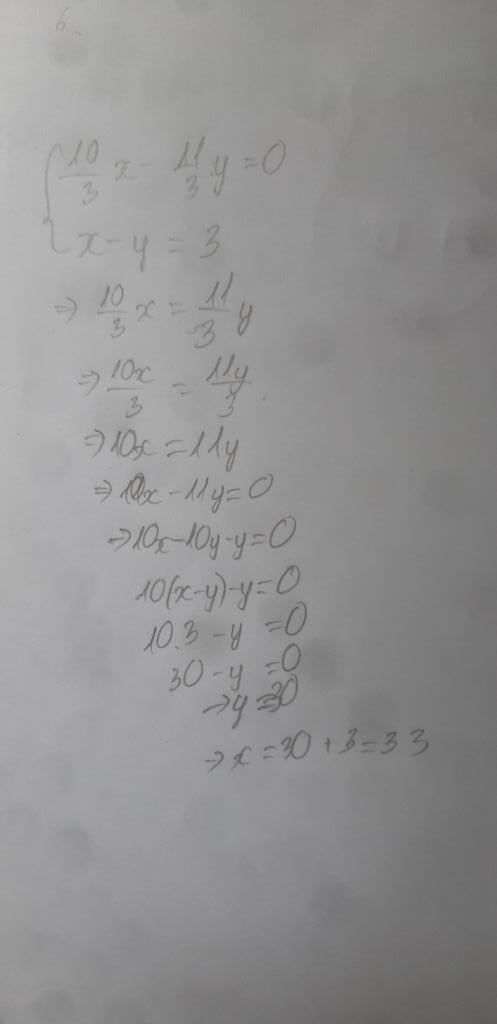 6.
{ 10/3 x - 11/3 y = 0
x - y = 3
=> 10/3 x = 11/3 y
=> 10x/3 = 11y/3
=> 10x = 11y
=> 10x - 11y = 0
=> 10x - 10y - y = 0
10(x-y) - y = 0
10.3 - y = 0
30 - y = 0
=> y = 30
=> x = 30 + 3 = 33